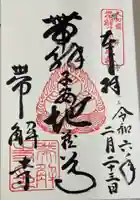 奉拝
令和六年
二月二十三日
帯解子安地蔵尊
帯解寺